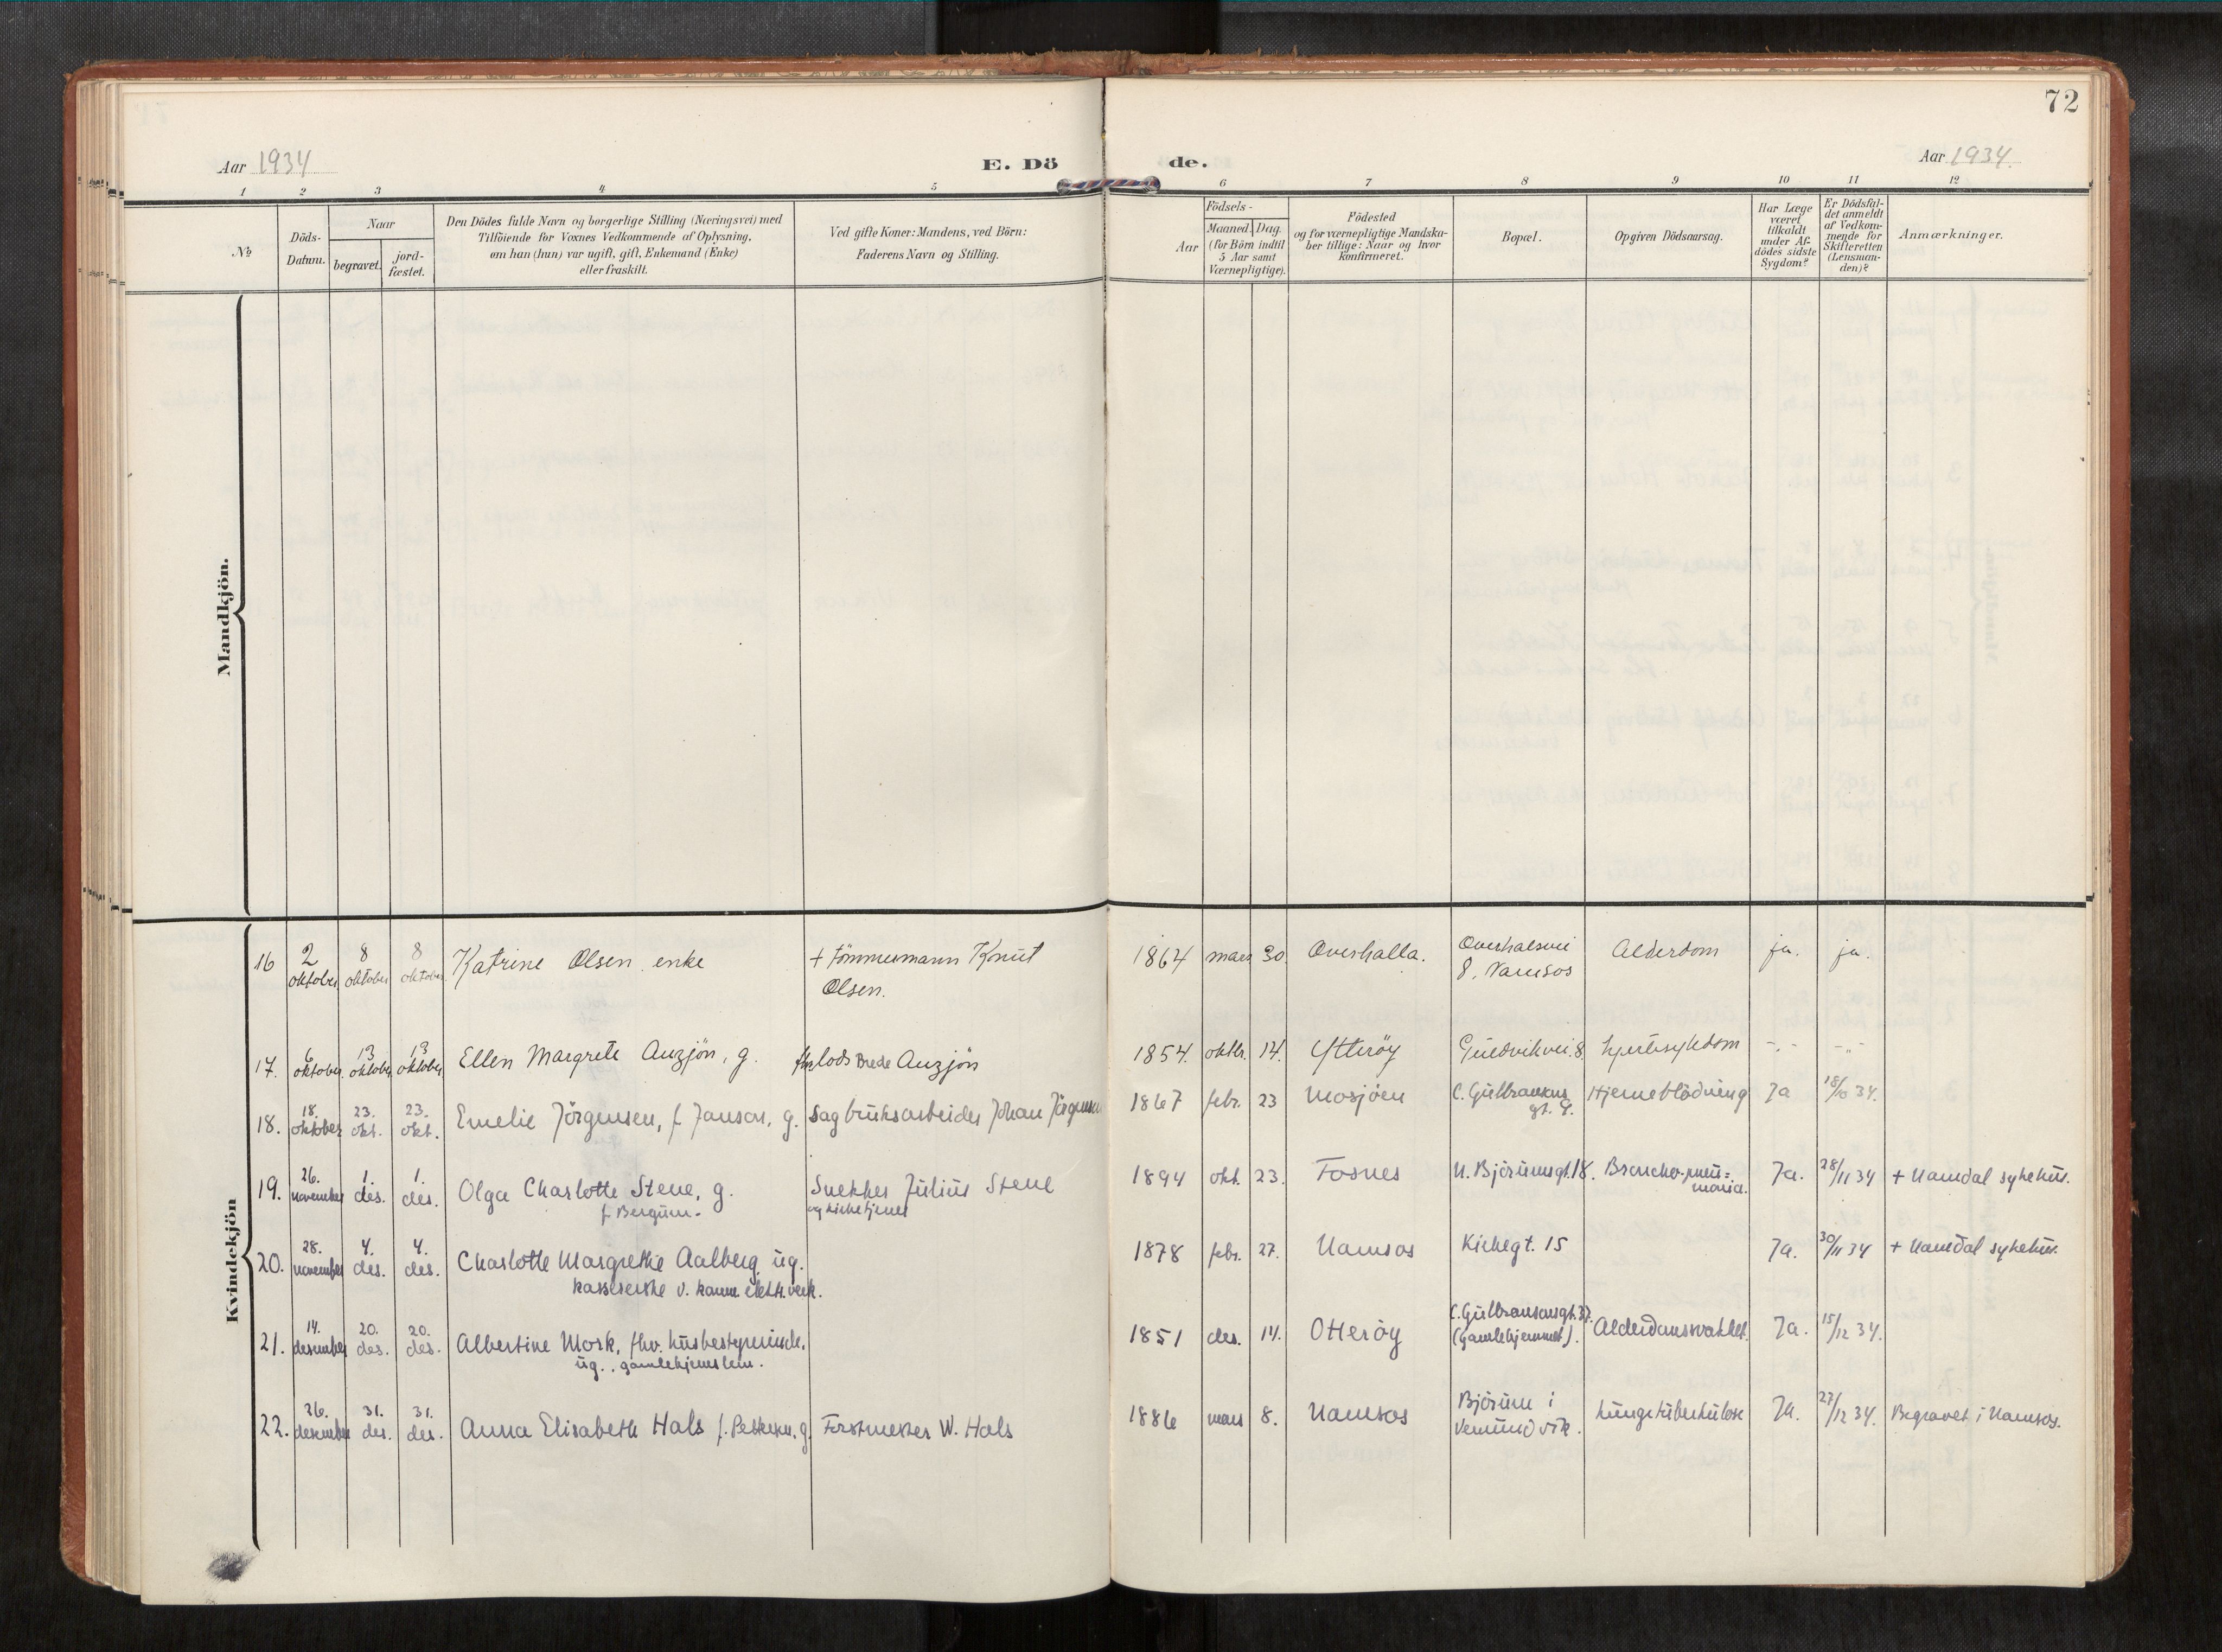 72
Aar 1934
E. Dö
de.
Aar 1934.
1 2 3 4 5 6 7 8 9 10 11 12
No
Döds-
Datum.
Naar
begravet.
jord-
fæstet.
Den Dödes fulde Navn og borgerlige Stilling (Næringsvei) med
Tilföiende for Voxnes Vedkommende af Oplysning,
om han (hun) var ugift, gift, Enkemand (Enke)
eller fraskilt.
Ved gifte Koner: Mandens, ved Börn:
Faderens Navn og Stilling.
Födsels-
Aar
Maaned. Dag.
(for Börn indtil
5 Aar samt
Værnepligtige).
Födested
og for værnepligtige Mandska-
ber tillige: Naar og hvor
konfirmeret.
Bopæl.
Opgiven Dödsaarsag.
Har Læge
været
tilkaldt
under Af-
dödes sidste
Sygdom?
Er Dödsfal-
det anmeldt
af Vedkom-
mende for
Skifteretten
(Lensman-
den)?
Anmærkninger.
Mandkjön.
Kvindekjön
16 2 oktober 8 oktober 8 oktober Katrine Olsen enke + tömmermann Knut
Olsen.
1864 mars 30. Overhalla. Overhalsvei
8, Namsos
Alderdom ja. ja.
17. 6 oktober. 13 oktober 13 oktober. Ellen Margrete Auzjön, g. fhv lods Brede Auzjön
1854. oktbr. 14. Ytteröy Guldvikvei. 8. hjertesykdom -,- -"-
18. 18. oktober 23. okt. 23. okt. Emelie Jörgensen, f. Janson, g. Sagbruksarbeider Johan Jörgensen
1867 febr. 23 Mosjöen C. Gulbransons
gt. 9.
Hjerneblödning Ja 18/10 34.
19. 26. november 1. des. 1. des. Olga Charlotte Stene, g.
f. Bergum.
Snekker Julius Stene
og kirketjener
1894 okt. 23. Fosnes N. Björumsgt. 18. Broncho-pneu=
monia.
Ja. 28/11 34 + Namdal sykehus.
20. 28. november 4. des. 4. des. Charlotte Margrethe Aalberg ug.
kassererske v. komm. elektr. verk.
1878 febr. 27. Namsos Kirkegt. 15 Ja. 30/11 34 + Namdal sykehus.
21. 14. desember 20. des. 20. des. Albertine Mork, fhv. husbestyrerinde.
ug., gamlehjemslem.
1851 des. 14. Otteröy C. Gulbransonsgt. 37.
(gamlehjemmet).
Alderdomssvakhet. Ja. 15/12 34.
22. 26. desember 31. des. 31. des. Anna Elisabeth Hals f. Pettersen. g. Forstmester W. Hals
1886 mars 8. Namsos Björum i
Vemundvik.
Lungetuberkulose Ja. 27/12 34. Begravet i Namsos.